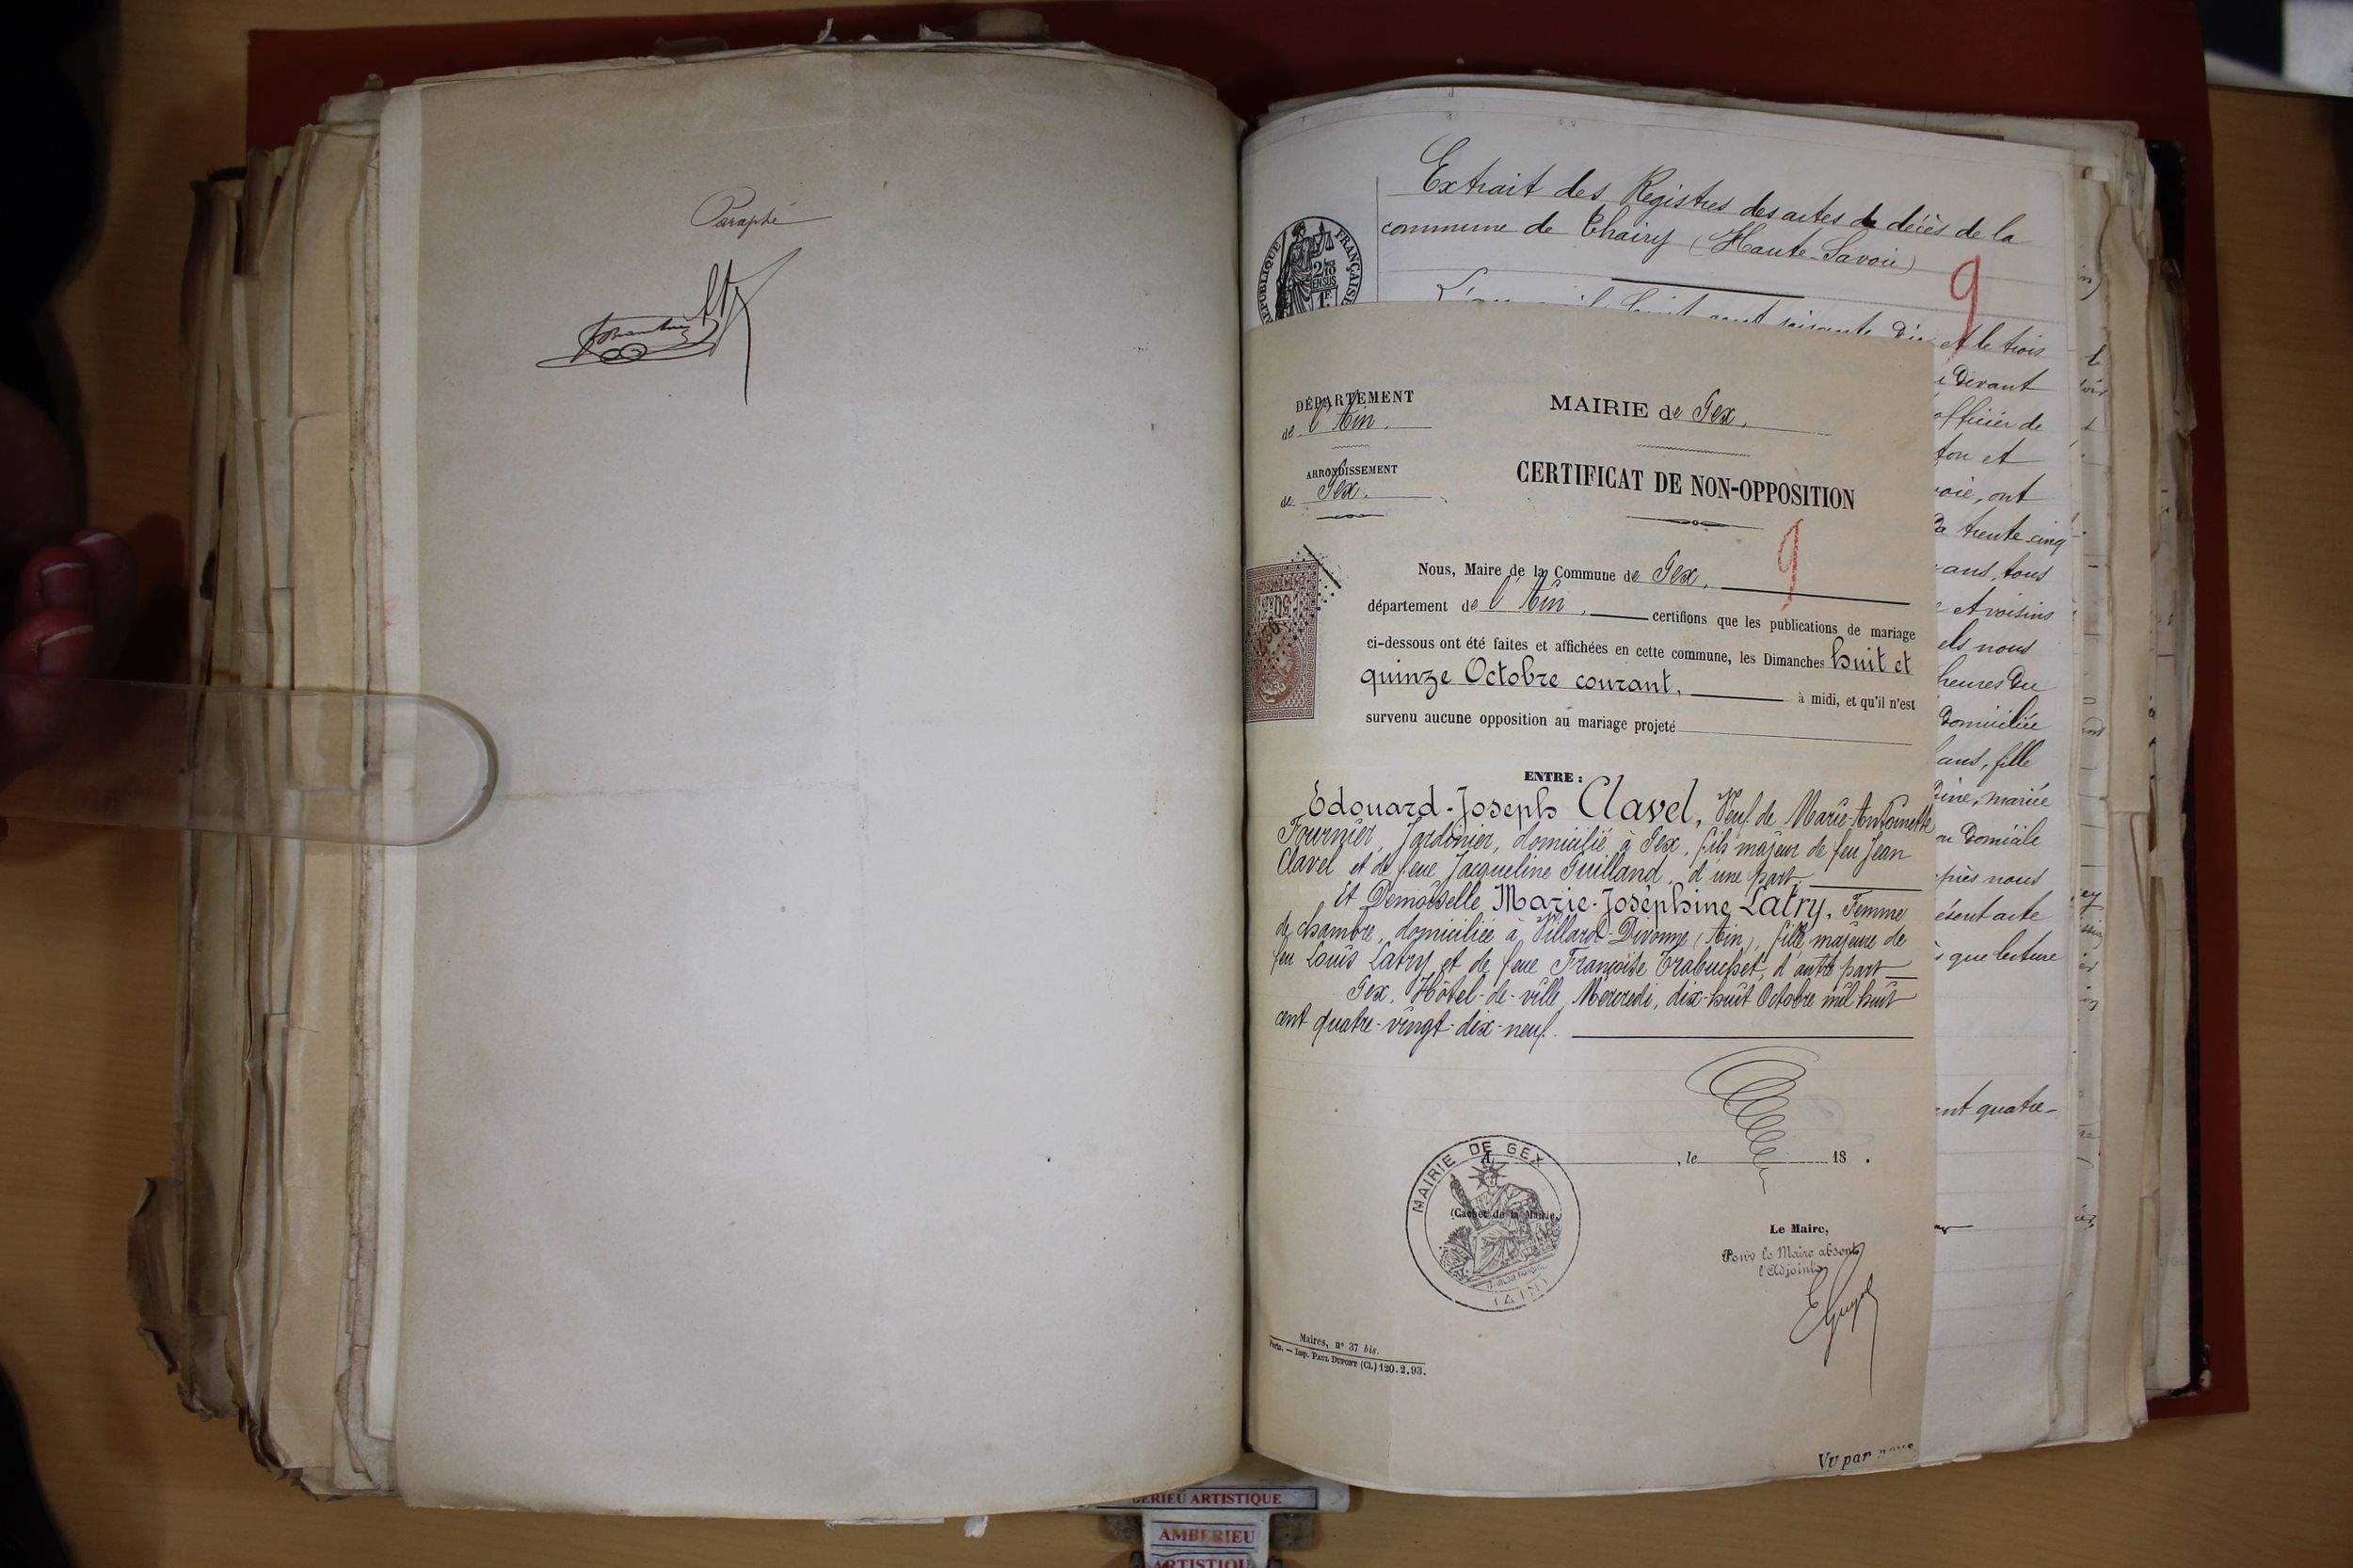 Paraphé
Extrait des Registres des actes de décès de la
commune de Thairy (Haute-Savoie)
RÉPUBLIQUE FRANÇAISE
9
et le trois
devant
officier de
ton et
ont
trente cinq
ans, tous
et voisins
els nous
heures du
domiciliée
ans, fille
mariée
domicile
près nous
ésent acte
que lecture
ent quatre-
DÉPARTEMENT
de l'Ain.
ARRONDISSEMENT
de Gex.
MAIRIE de Gex.
CERTIFICAT DE NON-OPPOSITION
9
Nous, Maire de la Commune de Gex,
département de l'Ain, certifions que les publications de mariage
ci-dessous ont été faites et affichées en cette commune, les Dimanches huit et
quinze Octobre courant, à midi, et qu'il n'est
survenu aucune opposition au mariage projeté
ENTRE :
Edouard-Joseph Clavel, Veuf de Marie-Antoinette
Fournier, Jardinier, domicilié à Gex, fils majeur de feu Jean
Clavel et de feue Jacqueline Guilland, d'une part.
Et Demoiselle Marie-Joséphine Latry, Femme
de chambre, domiciliée à Villard-Divonne (Ain), fille majeure de
feu Louis Latry et de feue Françoise Trabuchet, d'autre part
Gex, Hôtel-de-ville, Mercredi, dix-huit Octobre mil huit
cent quatre-vingt-dix-neuf.
A , le 18 .
MAIRIE DE GEX
(Cachet de la Mairie.)
(AIN)
Le Maire,
Pour le Maire absent
l'Adjoint
EGuyot
Maires, nº 37 bis.
Paris. — Imp. PAUL DUPONT (Cl.) 120.2.93.
Vu par nous
AMBERIEU ARTISTIQUE
AMBERIEU
ARTISTIQUE